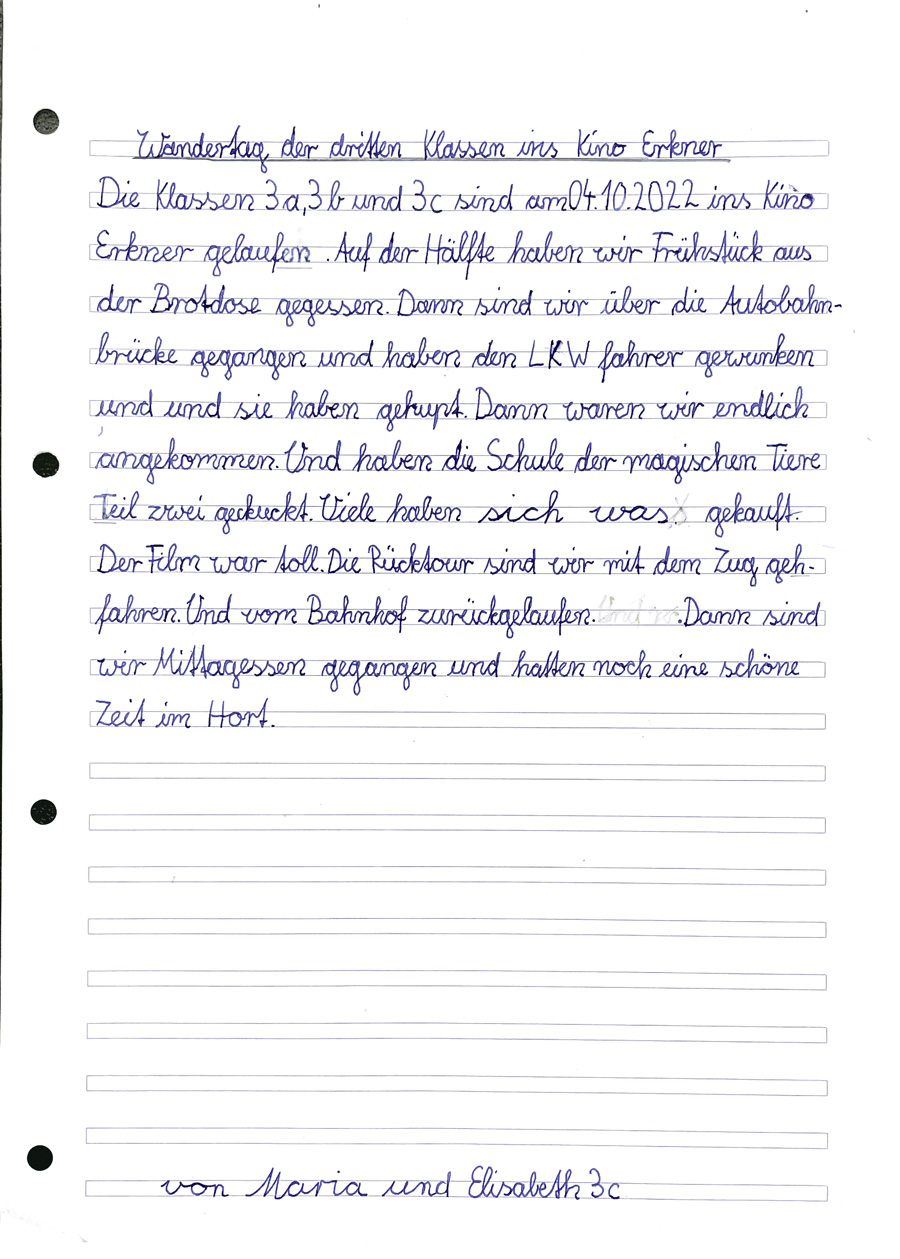 Wandertag der dritten Klassen ins Kino Erkner
Die Klassen 3a, 3b und 3c sind am 04.10.2022 ins Kino
Erkner gelaufen . Auf der Hälfte haben wir Frühstück aus
der Brotdose gegessen. Dann sind wir über die Autobahn-
brücke gegangen und haben den LKW fahrer gewunken
und und sie haben gehupt. Dann waren wir endlich
angekommen. Und haben die Schule der magischen Tiere
Teil zwei geckuckt. Viele haben sich was gekauft.
Der Film war toll. Die Rücktour sind wir mit dem Zug geh-
fahren. Und vom Bahnhof zurückgelaufen. Dann sind
wir Mittagessen gegangen und hatten noch eine schöne
Zeit im Hort.
von Maria und Elisabeth 3c